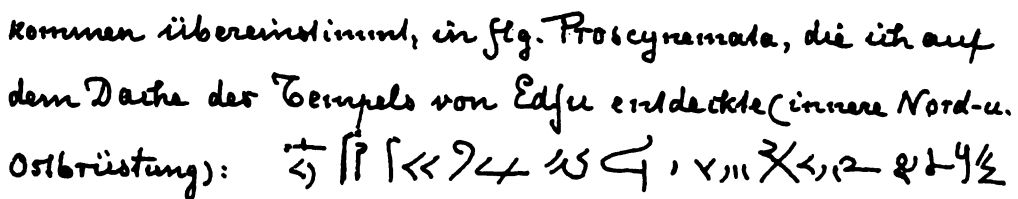 kommen übereinstimmt, in flg. Proscynemata, die ich auf
dem Dache des Tempels von Edfu entdeckte (innere Nord-u.
Ostbrüstung):